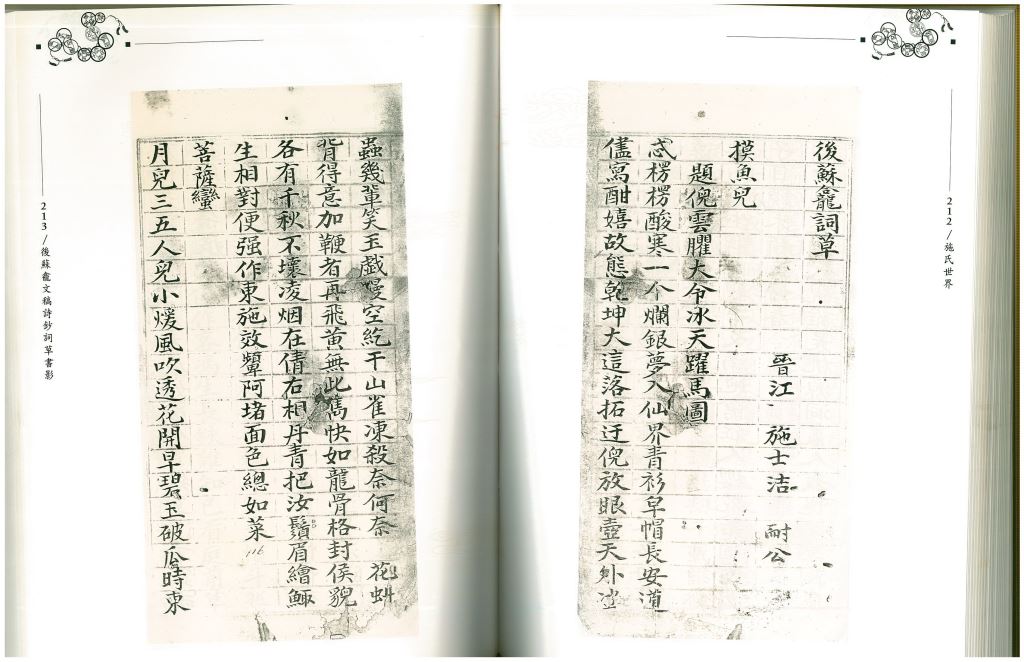 212/施氏世界
後蘇龕詞草
晉江 施士洁 耐公
摸魚兒
題倪雲臞大令冰天躍馬圖
忒楞楞酸寒一个爛銀夢入仙界青衫皁帽長安道
儘寫酣嬉故態乾坤大這落拓迂倪放眼壺天外
蟲幾輩笑玉戲嫚空紇干山雀凍殺奈何奈 花虯
背得意加鞭者再飛黃無此雋快如龍骨格封侯貌
各有千秋不壞凌烟在倩右相丹青把汝鬚眉繪鯫
生相對便强作東施效顰阿堵面色總如菜
菩薩蠻
月兒三五人兒小煖風吹透花開早碧玉破瓜時東
213/後蘇龕文稿詩鈔詞草書影